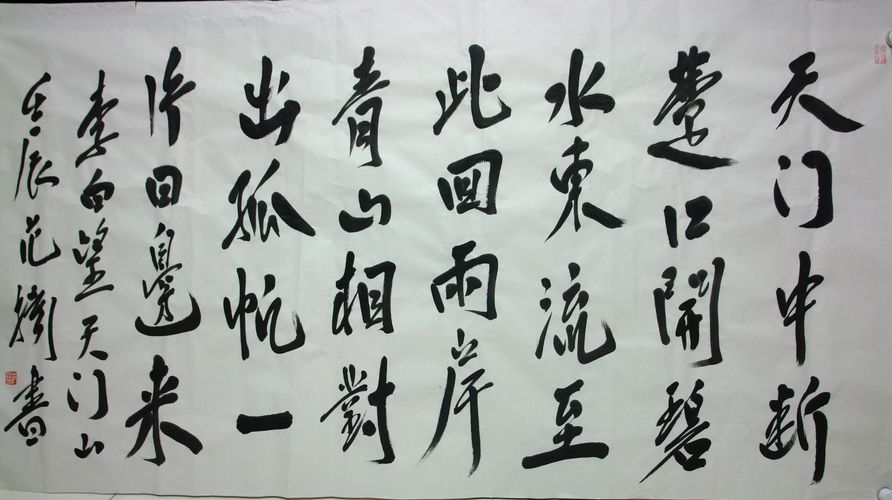 天门中断
楚江開碧
水東流至
此回兩岸
青山相對
出孤帆一
片日邊来
李白望天门山
壬辰范書